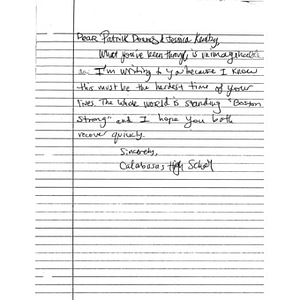 Dear Patrick Downes & Jessica Kensky,
What you've been through is unimaginable
I'm writing to you because I know
this must be the hardest time of your
lives. The whole world is standing "Boston
Strong" and I hope you both
recover quickly.
Sincerely,
Calabasas High School